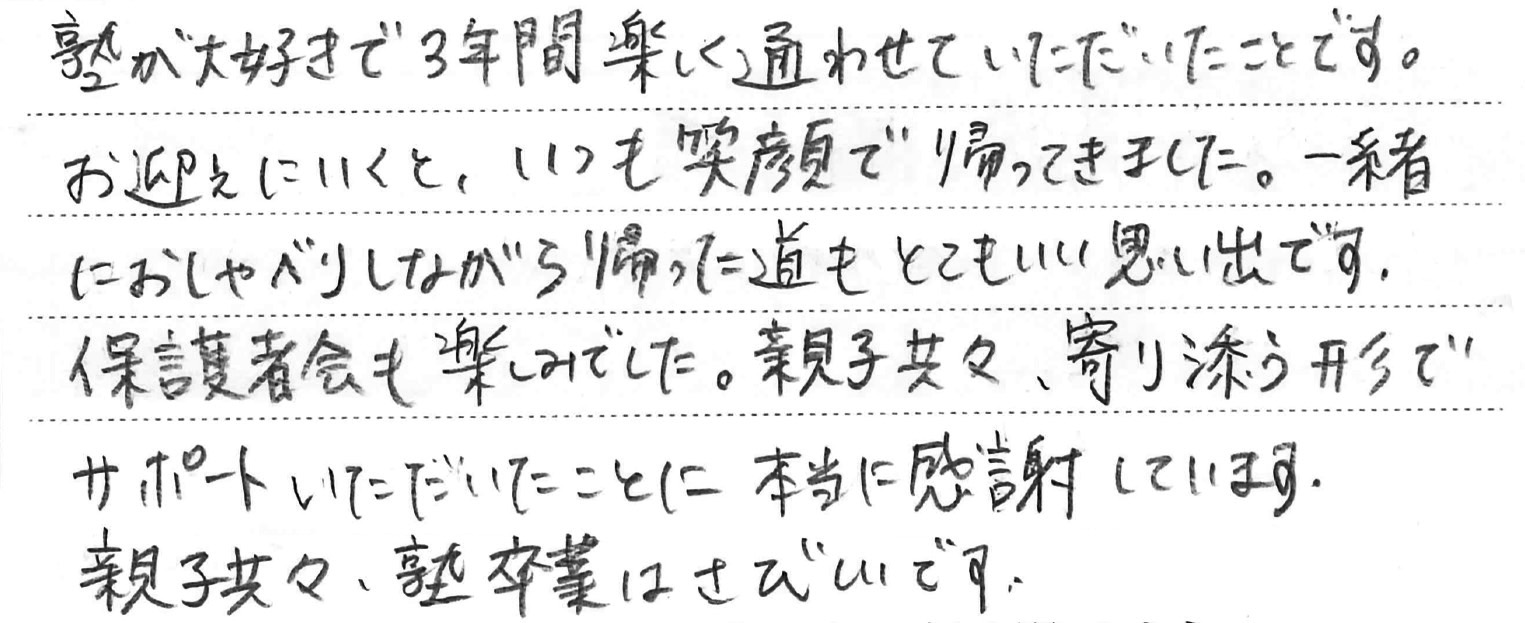 塾が大好きで3年間楽しく通わせていただいたことです。
お迎えにいくと、いつも笑顔で帰ってきました。一緒
におしゃべりしながら帰った道もとてもいい思い出です。
保護者会も楽しみでした。親子共々、寄り添う形で
サポートいただいたことに本当に感謝しています。
親子共々、塾卒業はさびしいです。